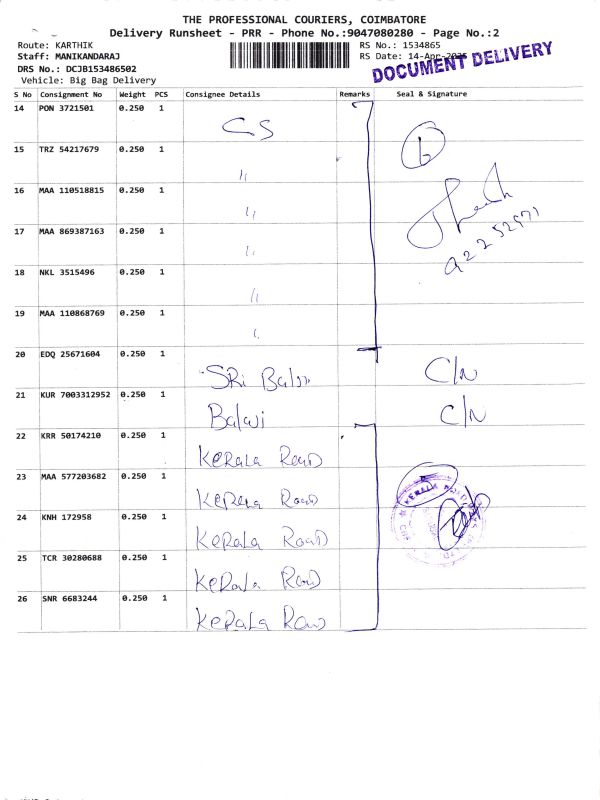 THE PROFESSIONAL COURIERS, COIMBATORE
Delivery Runsheet - PRR - Phone No.:9047080280 - Page No.:2
Route: KARTHIK
RS No.: 1534865
Staff: MANIKANDARAJ
RS Date: 14-Apr-
DOCUMENT DELIVERY
DRS No.: DCJB153486502
Vehicle: Big Bag Delivery
S No Consignment No Weight PCS Consignee Details Remarks Seal & Signature
14 PON 3721501 0.250 1 CS
6
15 TRZ 54217679 0.250 1 "
16 MAA 110518815 0.250 1 "
17 MAA 869387163 0.250 1 "
18 NKL 3515496 0.250 1 "
19 MAA 110868769 0.250 1
20 EDQ 25671604 0.250 1 SRi Balaji C/N
21 KUR 7003312952 0.250 1 Balaji C/N
22 KRR 50174210 0.250 1 KeRala Road
23 MAA 577203682 0.250 1 KeRala Road
24 KNH 172958 0.250 1 KeRaLa Road
25 TCR 30280688 0.250 1 KeRaLa Road
26 SNR 6683244 0.250 1 KeRaLa Road